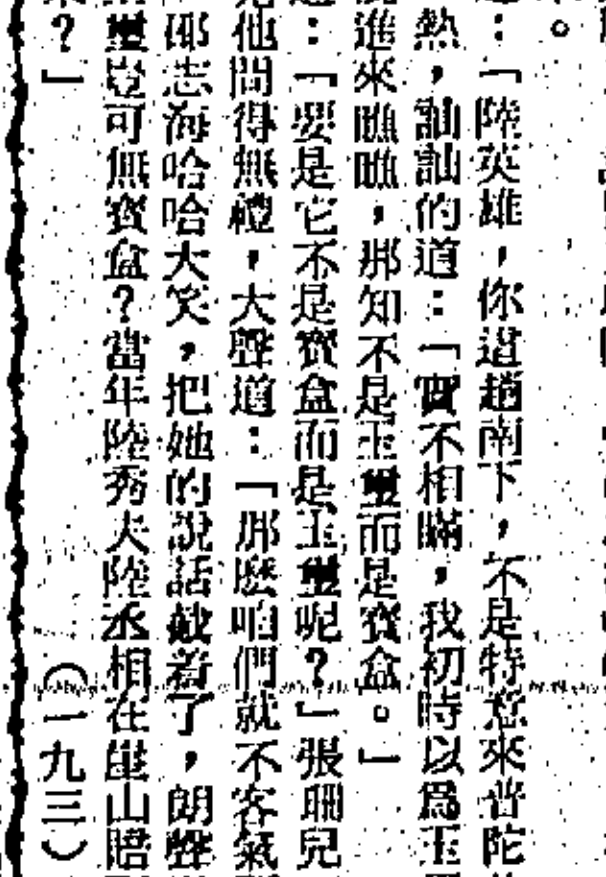 。
：「陸英雄，你這趟南下，不是特意來普陀
熱，訕訕的道：「實不相瞞，我初時以爲玉
進來瞧瞧，那知不是玉璽而是寶盒。」
：「要是它不是寶盒而是玉璽呢？」張珊兒
他問得無禮，大聲道：「那麽咱們就不客氣
邵志海哈哈大笑，把她的說話截着了，朗聲
璽豈可無寶盒？當年陸秀夫陸丞相在崖山賠
？」（一九三）